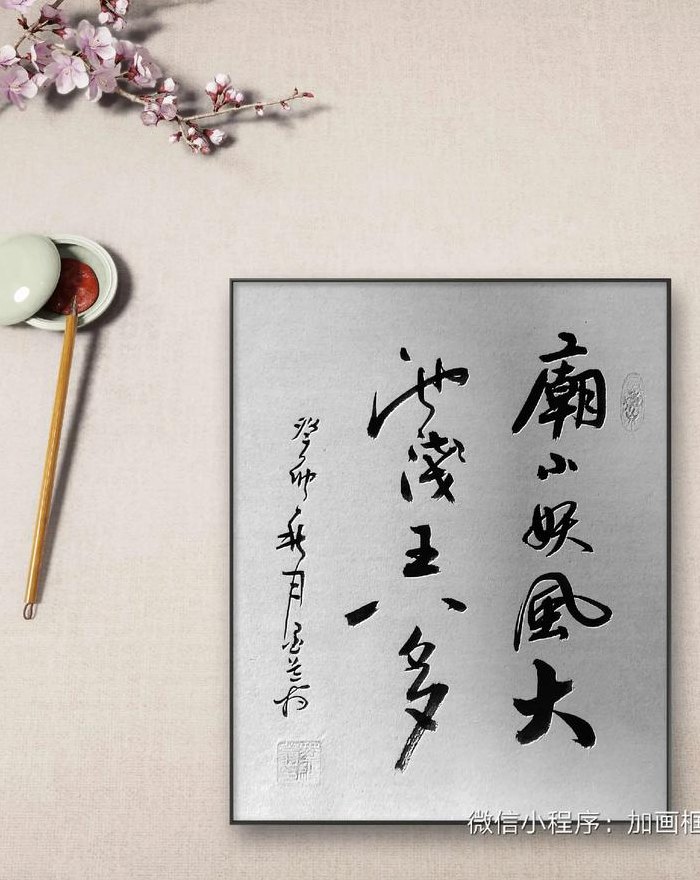 廟小妖風大
池淺王八多
癸卯秋月
微信小程序：加画框